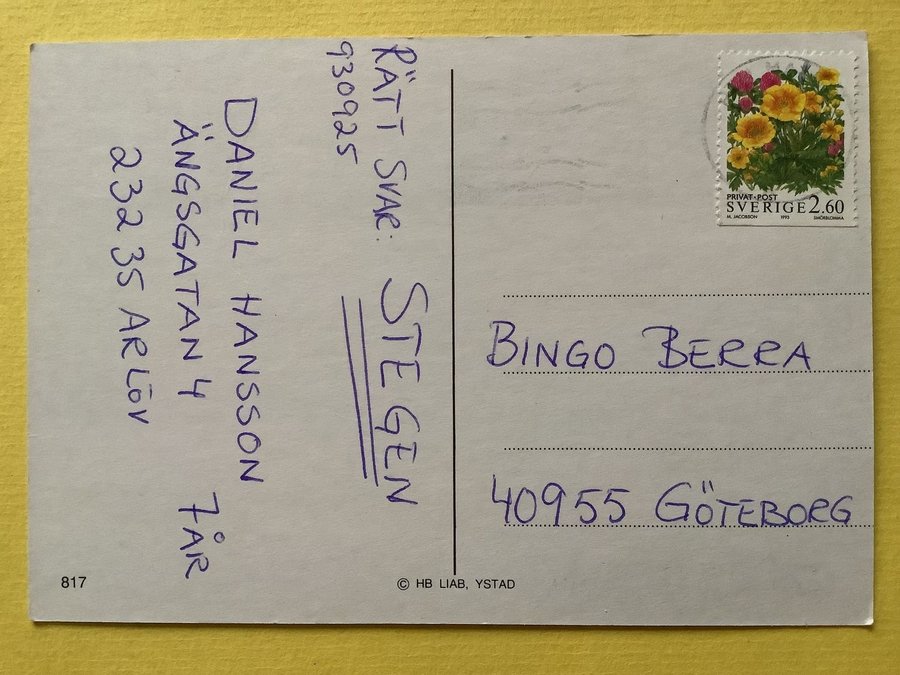 RÄTT SVAR: STEGEN
930925
DANIEL HANSSON
ÄNGSGATAN 4 7 ÅR
232 35 ARLÖV
817
© HB LIAB, YSTAD
PRIVAT·POST
SVERIGE 2.60
M. JACOBSON 1993 SMÖRBLOMMA
BINGO BERRA
40955 GÖTEBORG